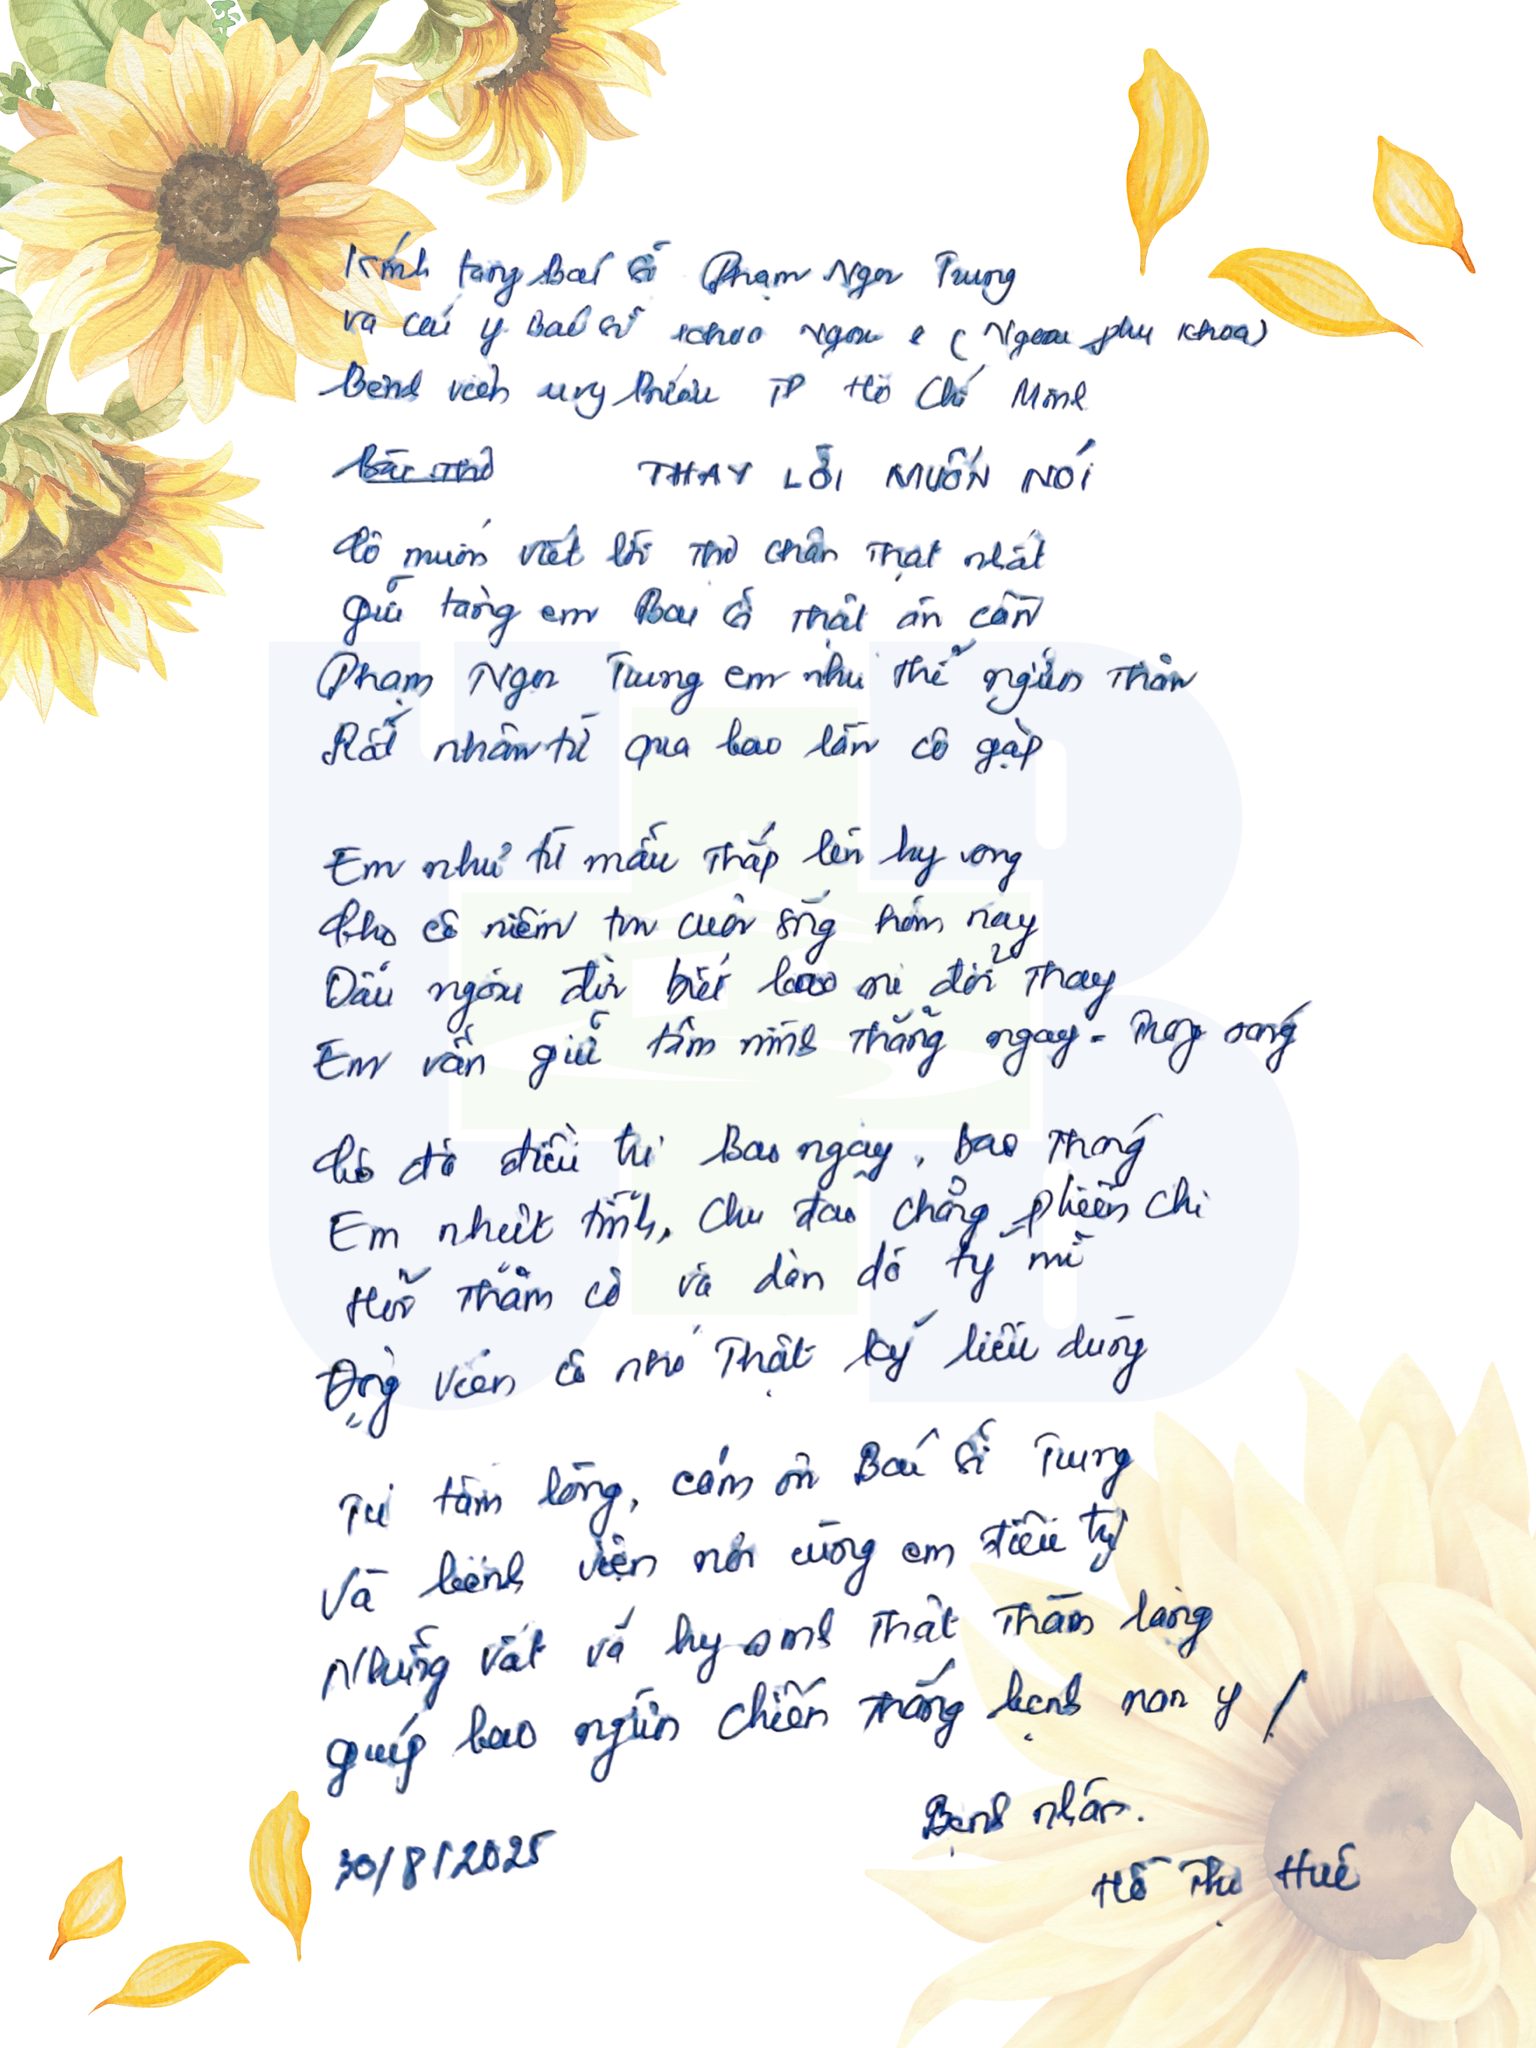 Kính tặng Bác sĩ Phạm Ngọc Trung
và các y Bác sĩ khoa ngoại e (Ngoại phụ khoa)
Bệnh viện ung bướu TP Hồ Chí Minh
Bài Thơ THAY LỜI MUỐN NÓI
Cô muốn viết lời thơ chân thật nhất
gửi tặng em Bác sĩ thật ân cần
Phạm Ngọc Trung em như thể người thân
Rất nhân từ qua bao lần cô gặp
Em như từ mẫu thắp lên hy vọng
Cho cô niềm tin cuộc sống hôm nay
Dẫu ngoài đời biết bao sự đổi thay
Em vẫn giữ tâm mình thẳng ngay - Trong sáng
Cô đã điều trị Bao ngày, Bao tháng
Em nhiệt tình, chu đáo chẳng phiền chi
Hỏi thăm cô và dặn dò tỷ mĩ
Động viên cô nhớ thật kỹ liều dùng
Từ tấm lòng, cám ơn Bác sĩ Trung
Và bệnh viện nơi cùng em điều trị
Những vất vả hy sinh thật thầm lặng
giúp bao người chiến thắng bệnh nan y /
Bệnh nhân.
30/8/2025
Hồ Thị Huế